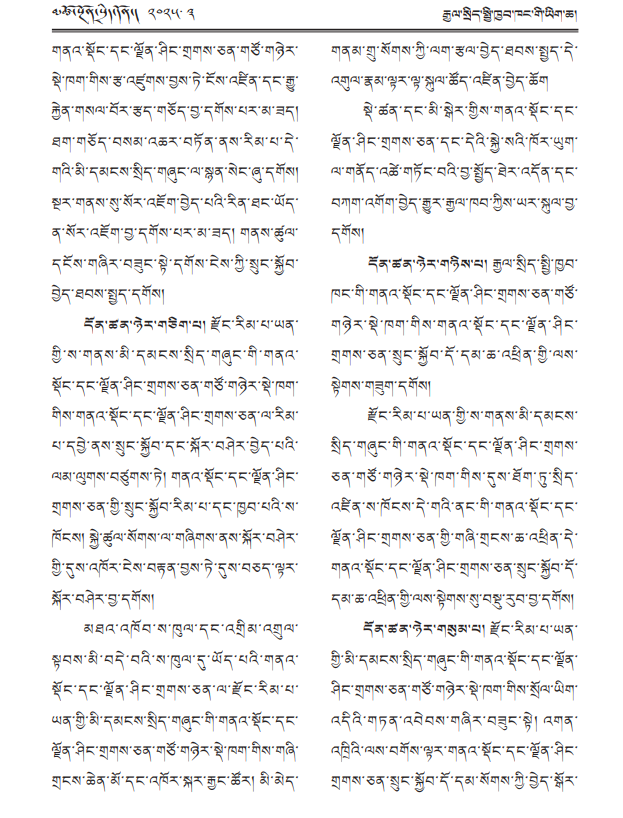 ༢༠༢༥.༣
རྒྱལ་སྲིད་སྤྱི་ཁྱབ་ཁང་གི་ཡིག་ཆ།
གནའ་སྡོང་དང་ལྗོན་ཤིང་གྲགས་ཅན་གཙོ་གཉེར་
སྡེ་ཁག་གིས་རྩ་འཛུགས་བྱས་ཏེ་ངོས་འཛིན་དང་རྒྱུ་
རྐྱེན་གསལ་བོར་རྩད་གཅོད་བྱ་དགོས་པར་མ་ཟད།
ཐག་གཅོད་བསམ་འཆར་བཏོན་ནས་རིམ་པ་དེ་
གའི་མི་དམངས་སྲིད་གཞུང་ལ་སྙན་སེང་ཞུ་དགོས།
སྔར་གནས་སུ་སོར་འཇོག་བྱེད་པའི་རིན་ཐང་ཡོད་
ན་སོར་འཇོག་བྱ་དགོས་པར་མ་ཟད། གནས་ཚུལ་
དངོས་གཞིར་བཟུང་སྟེ་དགོས་ངེས་ཀྱི་སྲུང་སྐྱོབ་
བྱེད་ཐབས་སྤྱད་དགོས།
དོན་ཚན་ཉེར་གཅིག་པ། རྫོང་རིམ་པ་ཡན་
གྱི་ས་གནས་མི་དམངས་སྲིད་གཞུང་གི་གནའ་
སྡོང་དང་ལྗོན་ཤིང་གྲགས་ཅན་གཙོ་གཉེར་སྡེ་ཁག་
གིས་གནའ་སྡོང་དང་ལྗོན་ཤིང་གྲགས་ཅན་ལ་རིམ་
པ་དབྱེ་ནས་སྲུང་སྐྱོབ་དང་སྐོར་བཤེར་བྱེད་པའི་
ལམ་ལུགས་བཙུགས་ཏེ། གནའ་སྡོང་དང་ལྗོན་ཤིང་
གྲགས་ཅན་གྱི་སྲུང་སྐྱོབ་རིམ་པ་དང་ཁྱབ་པའི་ས་
ཁོངས། སྐྱེ་ཚུལ་སོགས་ལ་གཞིགས་ནས་སྐོར་བཤེར་
གྱི་དུས་འཁོར་ངེས་བརྟན་བྱས་ཏེ་དུས་བཅད་ལྟར་
སྐོར་བཤེར་བྱ་དགོས།
མཐའ་འཁོབ་ས་ཁུལ་དང་འགྲིམ་འགྲུལ་
སྟབས་མི་བདེ་བའི་ས་ཁུལ་དུ་ཡོད་པའི་གནའ་
སྡོང་དང་ལྗོན་ཤིང་གྲགས་ཅན་ལ་རྫོང་རིམ་པ་
ཡན་གྱི་མི་དམངས་སྲིད་གཞུང་གི་གནའ་སྡོང་དང་
ལྗོན་ཤིང་གྲགས་ཅན་གཙོ་གཉེར་སྡེ་ཁག་གིས་གཞི་
གྲངས་ཆེན་མོ་དང་འཁོར་སྐར་རྒྱང་ཚོར། མི་མེད་
གནམ་གྲུ་སོགས་ཀྱི་ལག་རྩལ་བྱེད་ཐབས་སྤྱད་དེ་
འགུལ་རྣམ་ལྟར་ལྟ་སྐུལ་ཚོད་འཛིན་བྱེད་ཆོག
སྡེ་ཚན་དང་མི་སྒེར་གྱིས་གནའ་སྡོང་དང་
ལྗོན་ཤིང་གྲགས་ཅན་དང་དེའི་སྐྱེ་སའི་ཁོར་ཡུག་
ལ་གནོད་འཚེ་གཏོང་བའི་བྱ་སྤྱོད་ཐེར་འདོན་དང་
བཀག་འགོག་བྱེད་རྒྱུར་རྒྱལ་ཁབ་ཀྱིས་ཡར་སྐུལ་བྱ་
དགོས།
དོན་ཚན་ཉེར་གཉིས་པ། རྒྱལ་སྲིད་སྤྱི་ཁྱབ་
ཁང་གི་གནའ་སྡོང་དང་ལྗོན་ཤིང་གྲགས་ཅན་གཙོ་
གཉེར་སྡེ་ཁག་གིས་གནའ་སྡོང་དང་ལྗོན་ཤིང་
གྲགས་ཅན་སྲུང་སྐྱོབ་དོ་དམ་ཆ་འཕྲིན་གྱི་ལས་
སྟེགས་གཟུག་དགོས།
རྫོང་རིམ་པ་ཡན་གྱི་ས་གནས་མི་དམངས་
སྲིད་གཞུང་གི་གནའ་སྡོང་དང་ལྗོན་ཤིང་གྲགས་
ཅན་གཙོ་གཉེར་སྡེ་ཁག་གིས་དུས་ཐོག་ཏུ་སྲིད་
འཛིན་ས་ཁོངས་དེ་གའི་ནང་གི་གནའ་སྡོང་དང་
ལྗོན་ཤིང་གྲགས་ཅན་གྱི་གཞི་གྲངས་ཆ་འཕྲིན་དེ་
གནའ་སྡོང་དང་ལྗོན་ཤིང་གྲགས་ཅན་སྲུང་སྐྱོབ་དོ་
དམ་ཆ་འཕྲིན་གྱི་ལས་སྟེགས་སུ་བསྡུ་རུབ་བྱ་དགོས།
དོན་ཚན་ཉེར་གསུམ་པ། རྫོང་རིམ་པ་ཡན་
གྱི་མི་དམངས་སྲིད་གཞུང་གི་གནའ་སྡོང་དང་ལྗོན་
ཤིང་གྲགས་ཅན་གཙོ་གཉེར་སྡེ་ཁག་གིས་སྲོལ་ཡིག་
འདིའི་གཏན་འབེབས་གཞིར་བཟུང་སྟེ། འགན་
འཁྲིའི་ལས་བགོས་ལྟར་གནའ་སྡོང་དང་ལྗོན་ཤིང་
གྲགས་ཅན་སྲུང་སྐྱོབ་དོ་དམ་སོགས་ཀྱི་བྱེད་སྒོར་